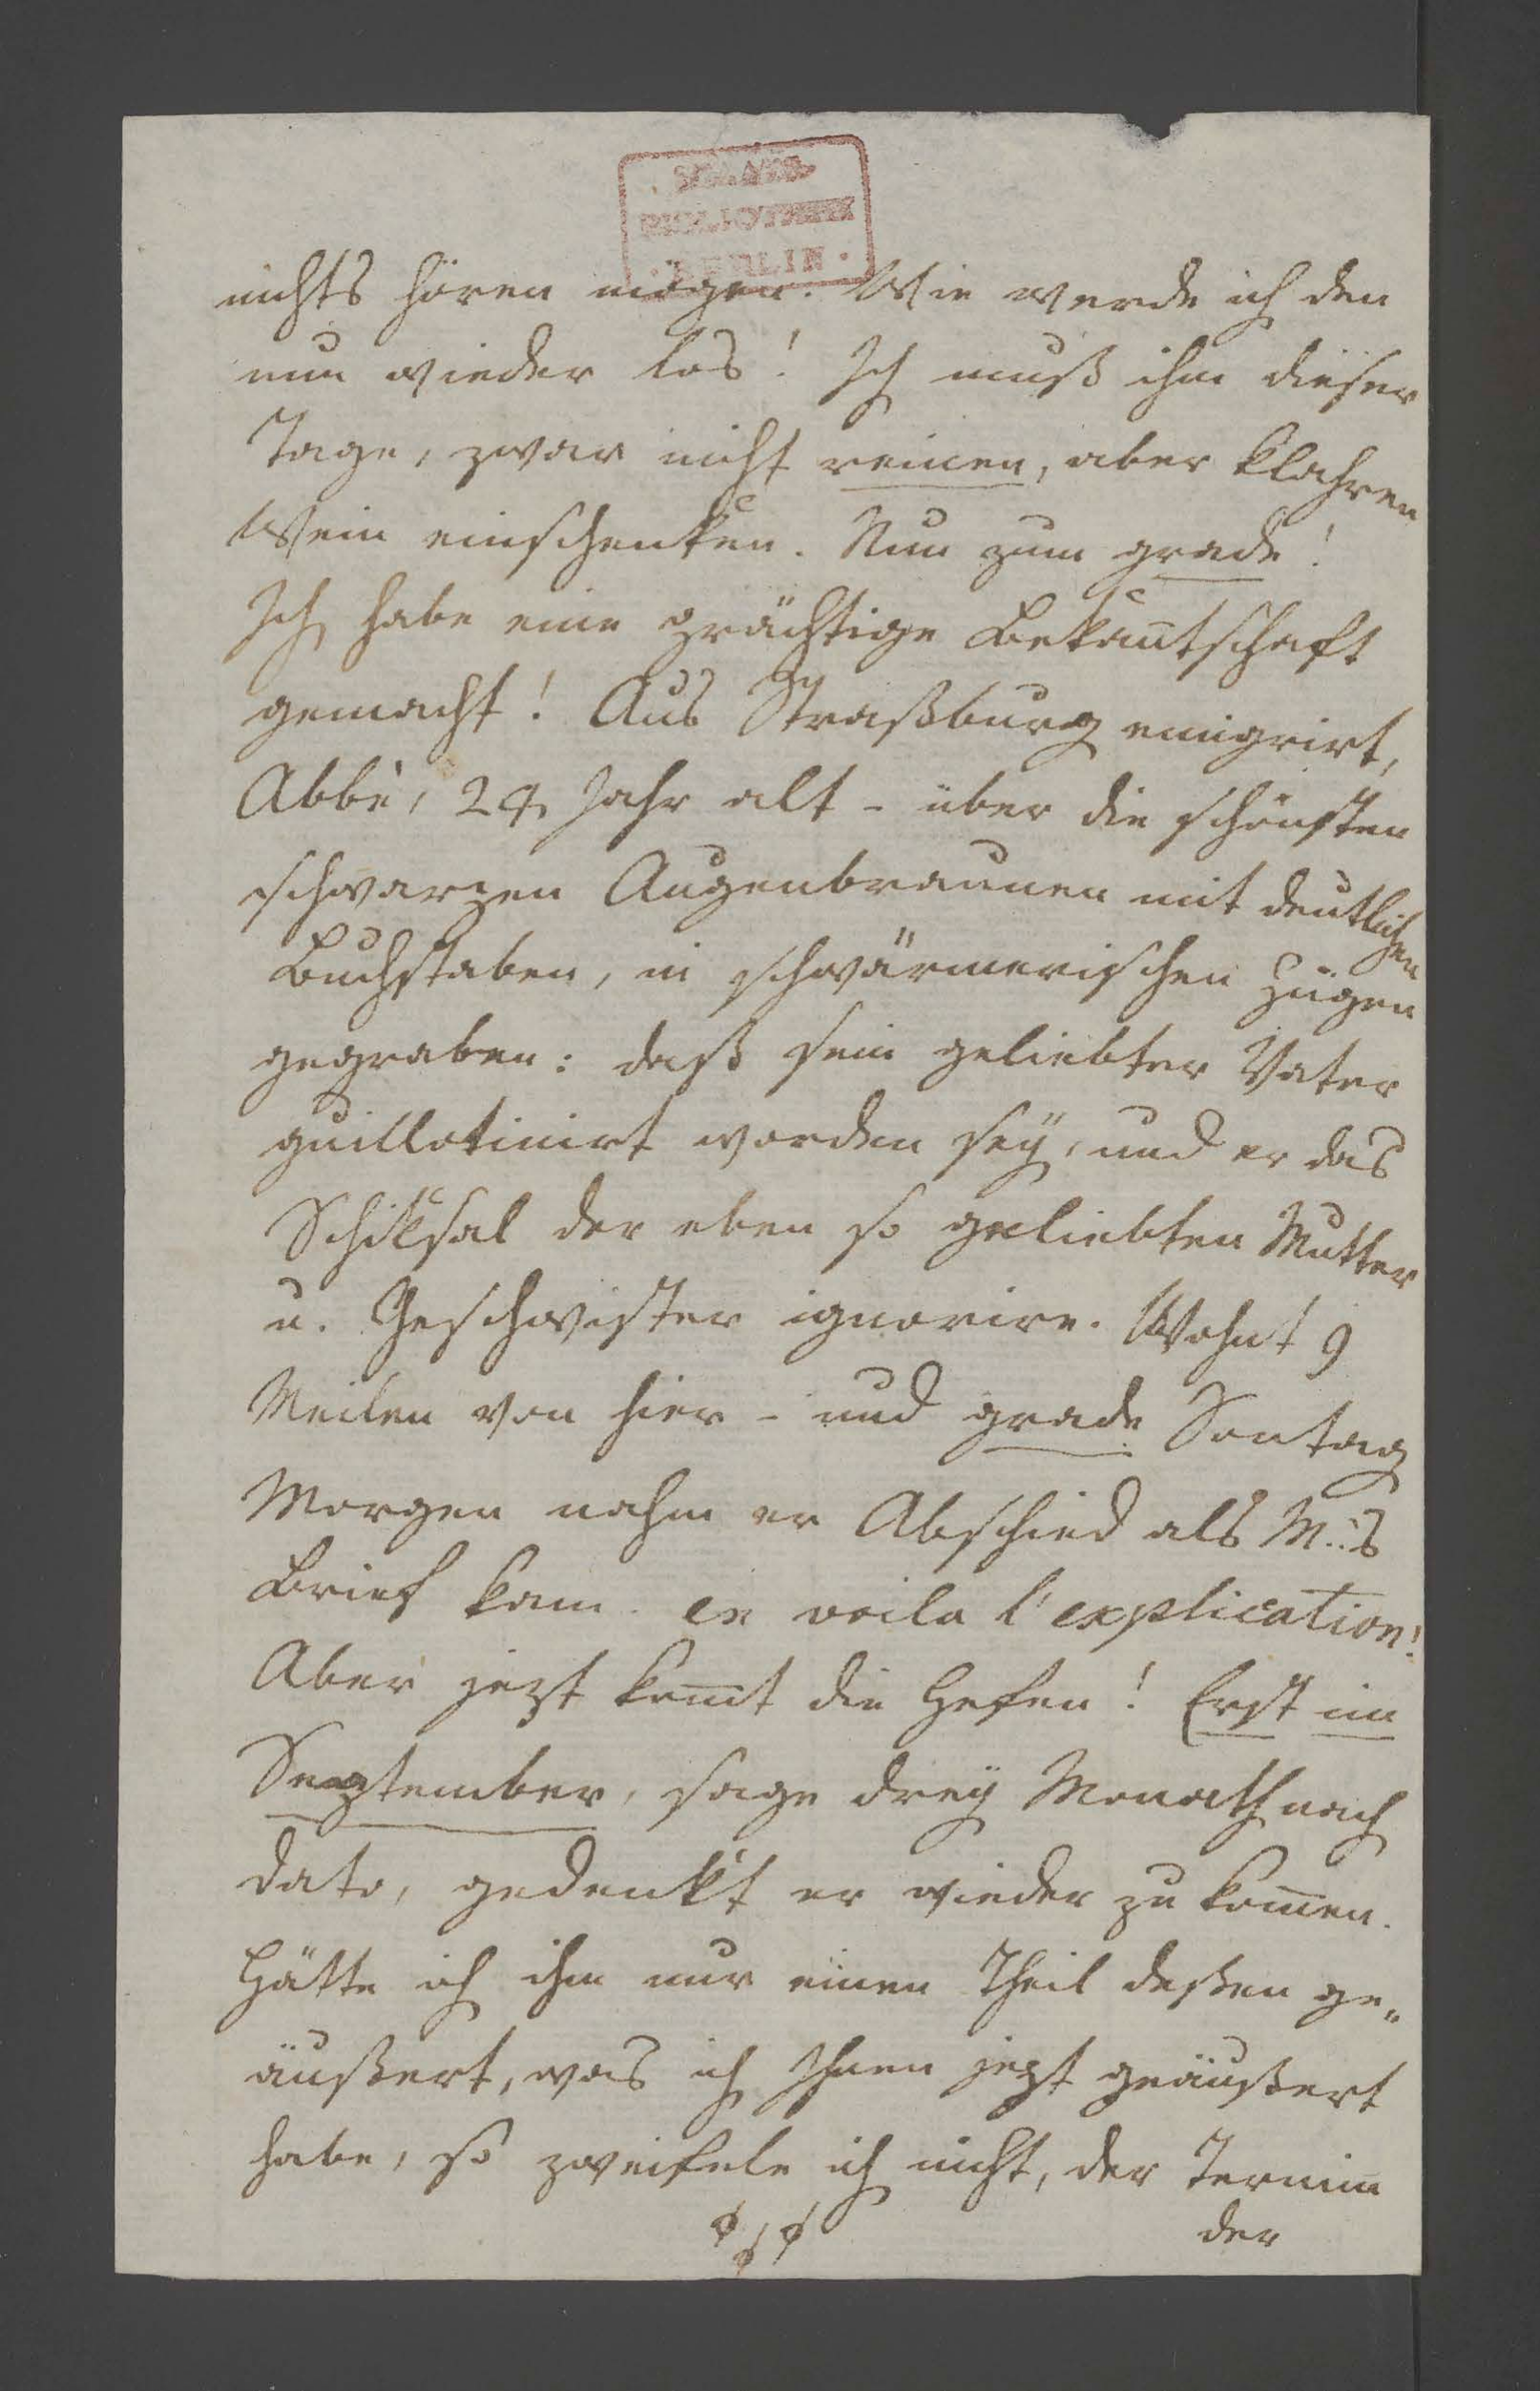 STAATS-
BIBLIOTHEK
· BERLIN ·
nichts hören mögen. Wie werde ich den
nun wieder los! Ich muß ihm dieser
Tage, zwar nicht reinen, aber klahren
Wein einschenken. Nun zum grade!
Ich habe eine prächtige Bekan̄tschaft
gemacht! Aus Straßburg emigrirt,
Abbé, 24 Jahr alt - über die schönsten
schwarzen Augenbraunen mit deutlichen
Buchstaben, in schwärmerischen Zügen
gegraben: daß sein geliebter Vater
guillotinirt worden seÿ, und er das
Schiksal der eben so geliebten Mutter
u. Geschwister ignorire. Wohnt 9
Meilen von hier - und grade Sontag
Morgen nahm er Abschied als M..s
Brief kam. en voila l'explication!
Aber jezt kom̄t die Hefen! Erst im
September, sage dreÿ Monath nach
dato, gedenkt er wieder zu kom̄en.
Hätte ich ihm nur einen Theil deßen ge„
äußert, was ich Ihnen jezt geäußert
habe, so zweifele ich nicht, der Termin
der